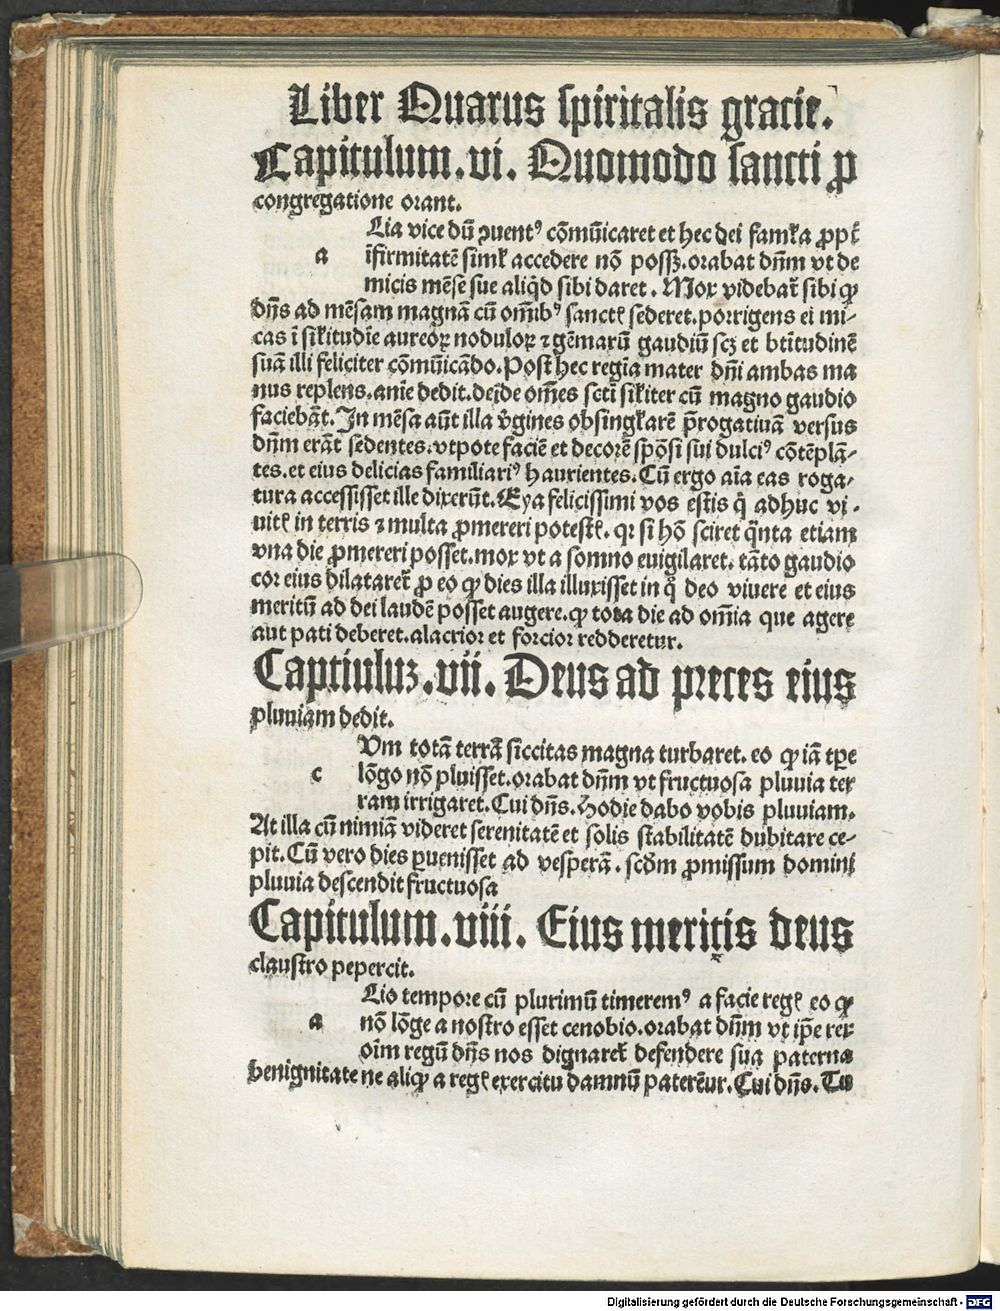 Liber Quarus spiritalis gracie.
Capitulum.vi. Quomodo sancti ꝓ
congregatione orant.
Lia vice dū ꝯuentꝰ cōmūicaret et hec dei famĺa ꝓpt̄
a
īfirmitatē simĺ accedere nō possꝫ.orabat dn̄m vt de
micis mēse sue aliq̇d sibi daret. Mox videbat̄ sibi ꝙ
dn̄s ad mēsam magnā cū om̄ibꝰ sanctꝭ sederet.porrigens ei mi-
cas ī siĺitudīe aureoꝝ noduloꝝ ⁊ gēmarū gaudiū scꝫ et btītudinē
suā illi feliciter cōmūicādo.Post hec regīa mater dn̄i ambas ma
nus replens.anīe dedit.deīde om̄es sctī siĺiter cū magno gaudio
faciebāt.In mēsa aūt illa v̇gines obsingĺarē p̄rogatiuā versus
dn̄m erāt sedentes.vtpote faciē et decorē spōsi sui dulciꝰ cōtēplā-
tes.et eius delicias familiariꝰ haurientes.Cū ergo aīa eas roga-
tura accessisset ille dixerūt.Eya felicissimi vos estis q̇ adhuc vi-
uitꝭ in terris ⁊ multa ꝓmereri potestꝭ.qꝛ si hō sciret q̄nta etiam
vna die ꝓmereri posset.mox vt a somno euigilaret.tāto gaudio
cor eius dilataret̄ ꝓ eo ꝙ dies illa illuxisset in q̇ deo viuere et eius
meritū ad dei laudē posset augere.ꝙ tota die ad om̄ia que agere
aut pati deberet.alacrior et forcior redderetur.
Captiuluꝫ.vii. Deus ad preces eius
pluuiam dedit.
Um totā terrā siccitas magna turbaret.eo ꝙ iā tꝑe
c
lōgo nō pluisset.orabat dn̄m vt fructuosa pluuia ter
ram irrigaret.Cui dn̄s.Hodie dabo vobis pluuiam.
At illa cū nimiā videret serenitatē et solis stabilitatē dubitare ce-
pit.Cū vero dies ꝑuenisset ad vesperā.scd̄m ꝓmissum domini
pluuia descendit fructuosa
Capitulum.viii. Eius meritis deus
claustro pepercit.
Lio tempore cū plurimū timeremꝰ a facie regꝭ eo ꝙ
a
nō lōge a nostro esset cenobio.orabat dn̄m vt ip̄e rex
oīm regū dn̄s nos dignaret̄ defendere sua paterna
benignitate ne aliꝙ a regꝭ exercitu damnū paterēur.Cui dn̄s.Tu
Digitalisierung gefördert durch die Deutsche Forschungsgemeinschaft - DFG